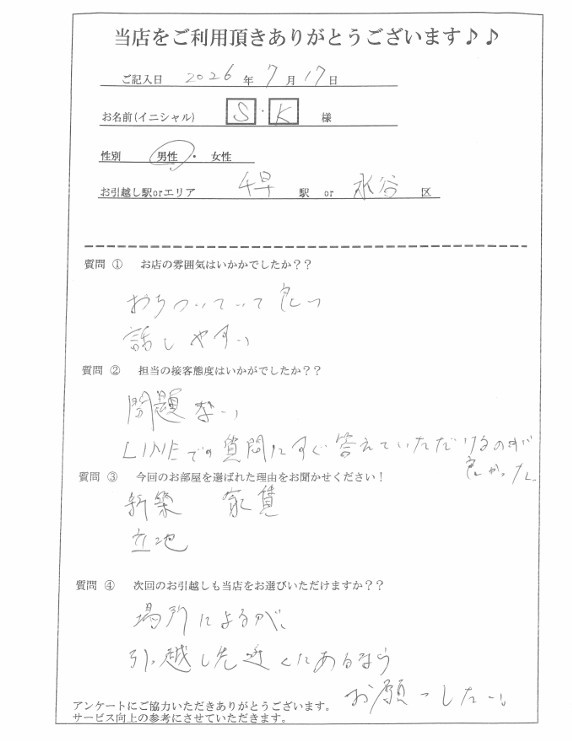 当店をご利用頂きありがとうございます♪♪
ご記入日 2026年 7月 17日
お名前(イニシャル) S・K 様
性別 男性・女性
お引越し駅orエリア 千早 駅 or 水谷 区
質問 ① お店の雰囲気はいかかでしたか？？
おちついていて良い
話しやすい
質問 ② 担当の接客態度はいかがでしたか？？
問題ない
LINEでの質問にすぐ答えていただけるのが
良かった。
質問 ③ 今回のお部屋を選ばれた理由をお聞かせください！
新築 家賃
立地
質問 ④ 次回のお引越しも当店をお選びいただけますか？？
場所によるが、
引越し先近くにあるなら
お願いしたい。
アンケートにご協力いただきありがとうございます。
サービス向上の参考にさせていただきます。